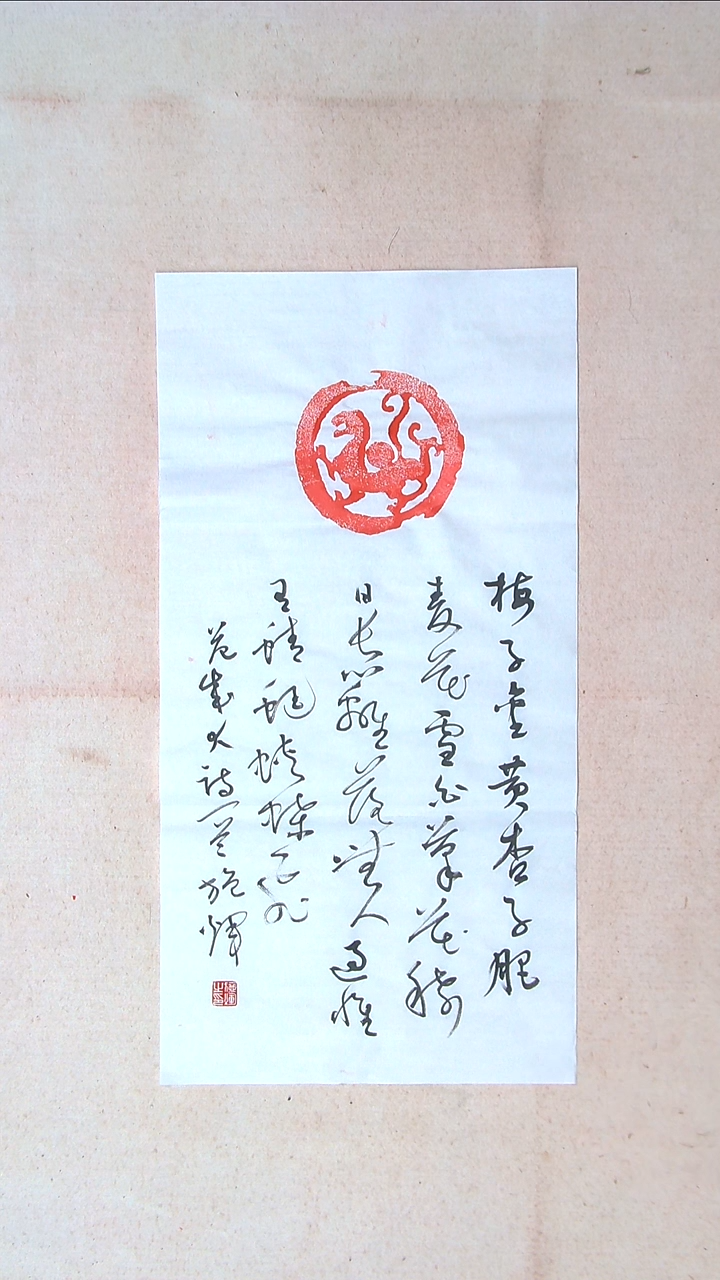 梅子金黄杏子肥
麦花雪白菜花稀
日长籬落無人過惟
有蜻蜓蛺蝶飞
范成大詩一首 施輝